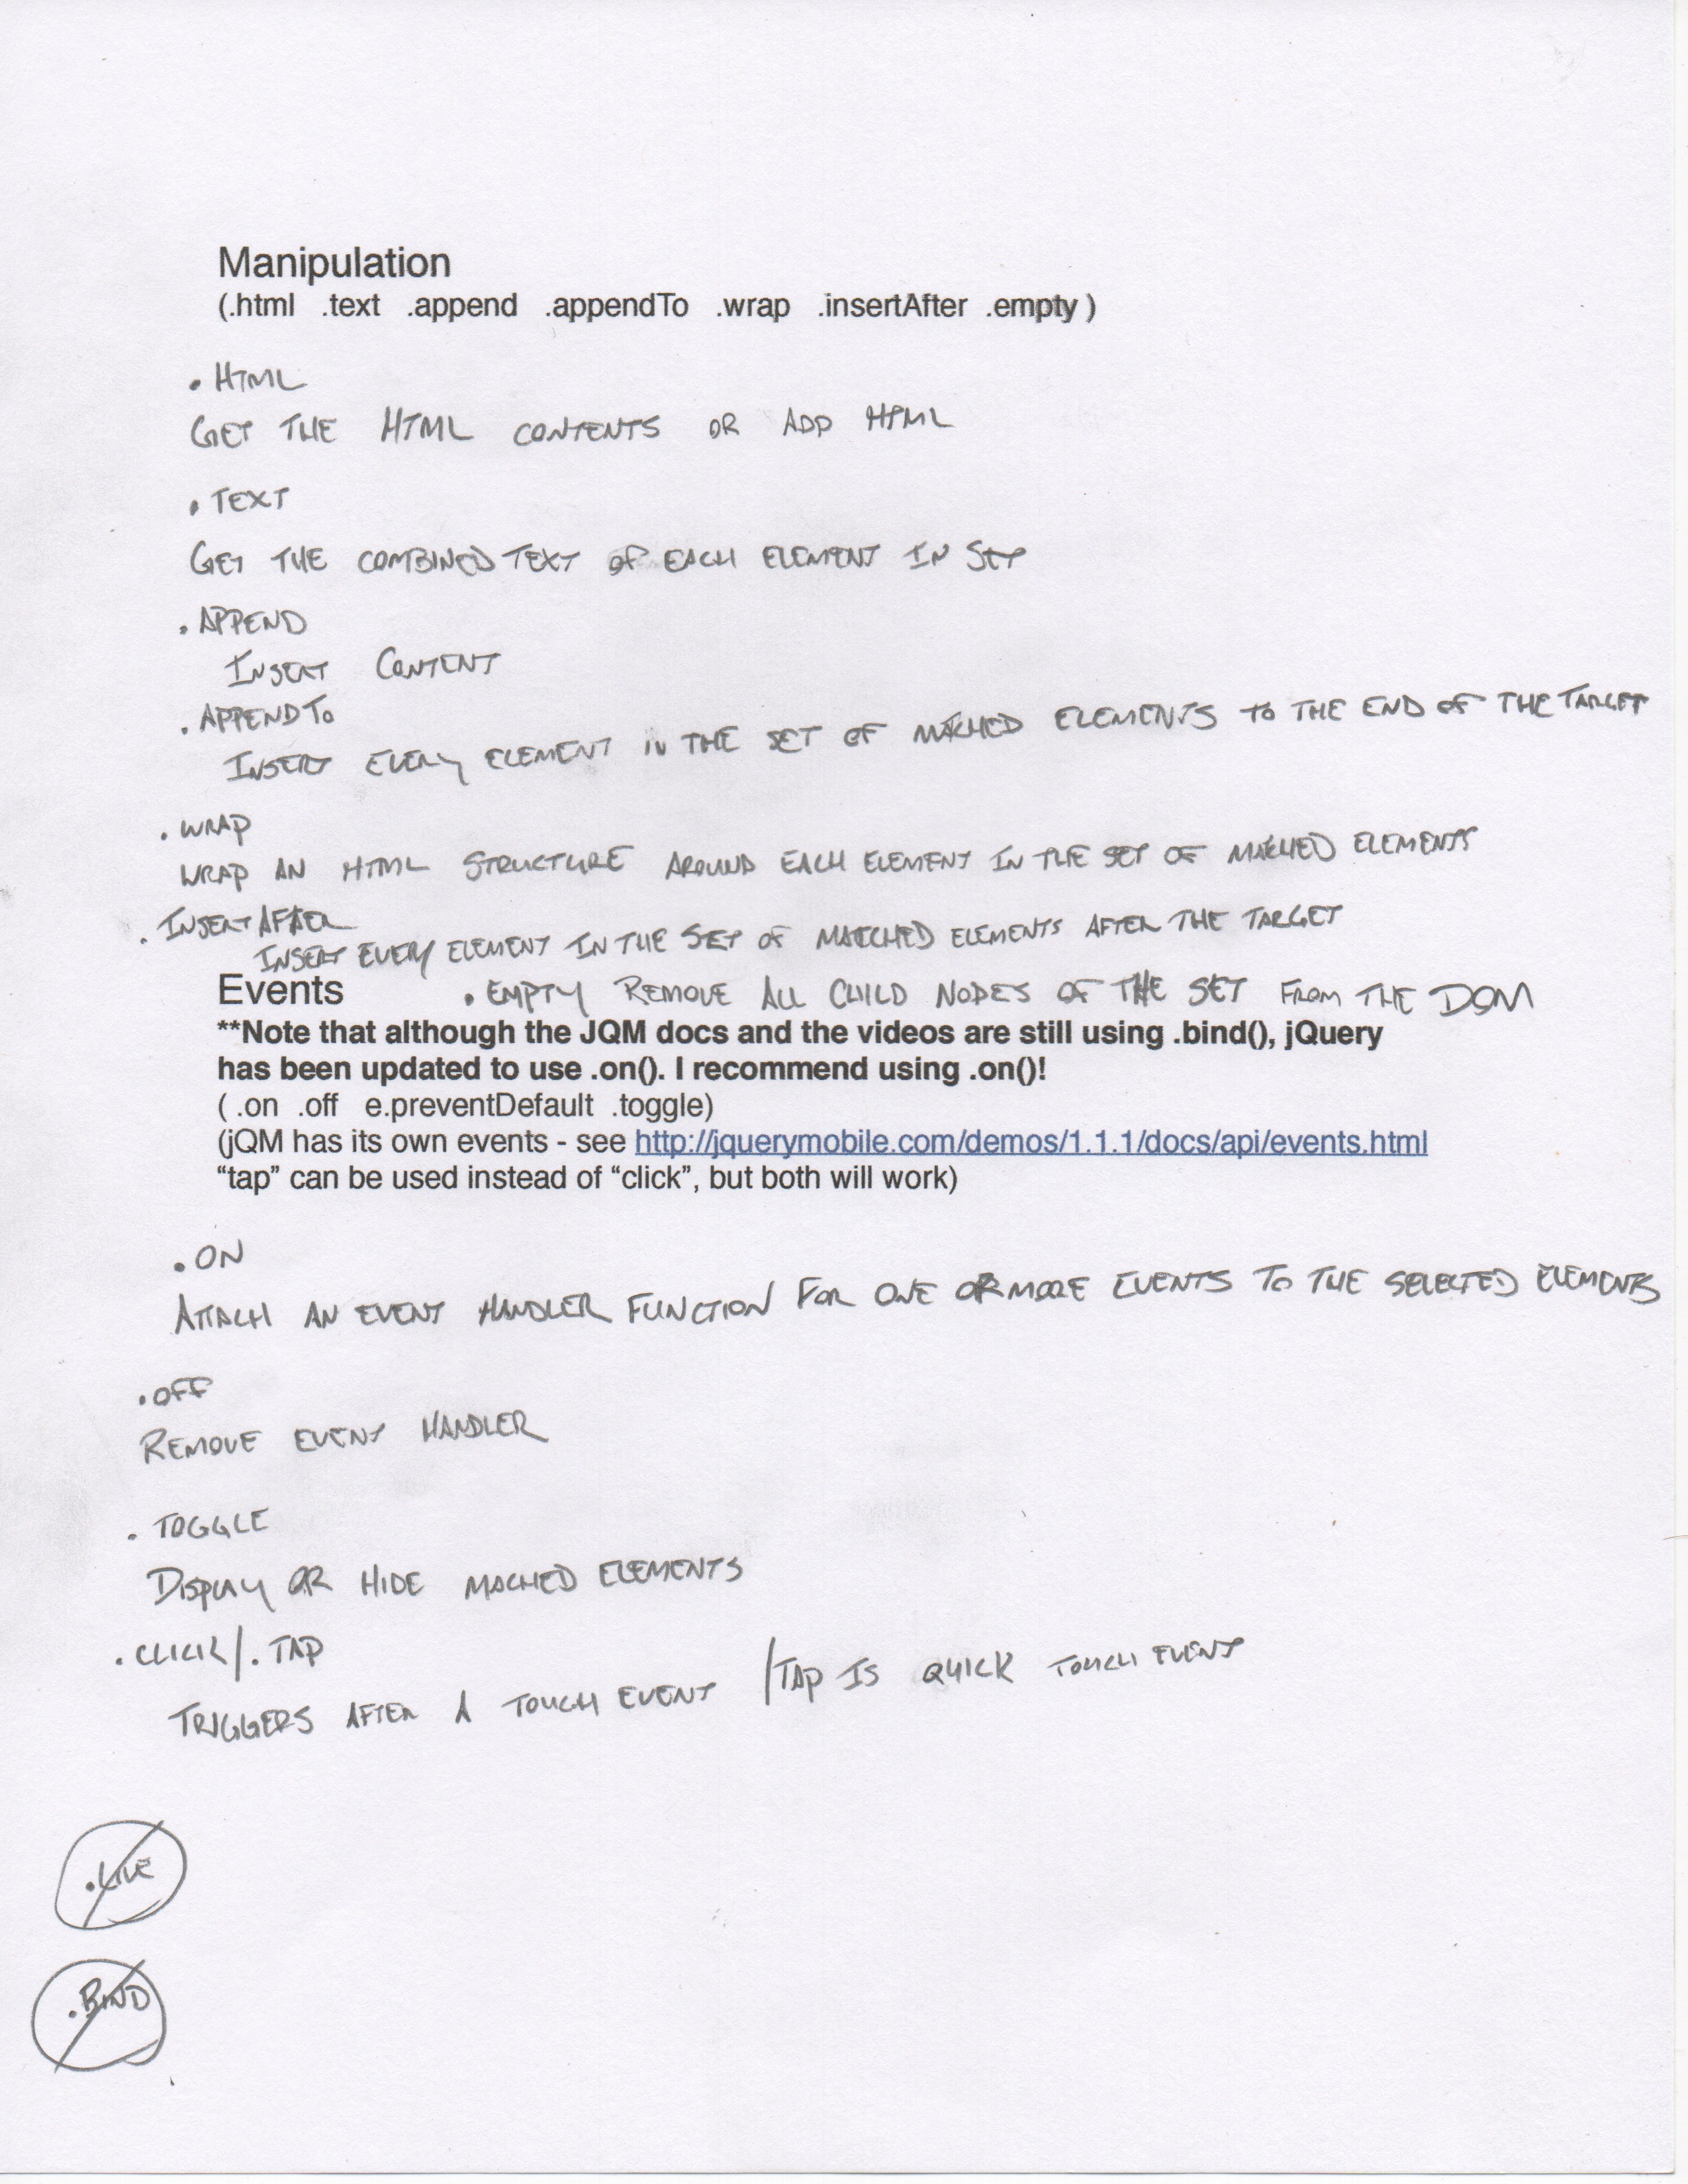 Manipulation
(.html .text .append .appendTo .wrap .insertAfter .empty )
. HTML
GET THE HTML CONTENTS OR ADD HTML
. TEXT
GET THE COMBINED TEXT OF EACH ELEMENT IN SET
. APPEND
INSERT CONTENT
. APPENDTO
INSERT EVERY ELEMENT IN THE SET OF MATCHED ELEMENTS TO THE END OF THE TARGET
. WRAP
WRAP AN HTML STRUCTURE AROUND EACH ELEMENT IN THE SET OF MATCHED ELEMENTS
. INSERTAFTER
INSERT EVERY ELEMENT IN THE SET OF MATCHED ELEMENTS AFTER THE TARGET
Events . EMPTY REMOVE ALL CHILD NODES OF THE SET FROM THE DOM
**Note that although the JQM docs and the videos are still using .bind(), jQuery
has been updated to use .on(). I recommend using .on()!
( .on .off e.preventDefault .toggle)
(jQM has its own events - see http://jquerymobile.com/demos/1.1.1/docs/api/events.html
“tap” can be used instead of “click”, but both will work)
. ON
ATTACH AN EVENT HANDLER FUNCTION FOR ONE OR MORE EVENTS TO THE SELECTED ELEMENTS
. OFF
REMOVE EVENT HANDLER
. TOGGLE
DISPLAY OR HIDE MACHED ELEMENTS
. CLICK/. TAP
TRIGGERS AFTER A TOUCH EVENT /TAP IS QUICK TOUCH EVENT
.LIVE
.BIND